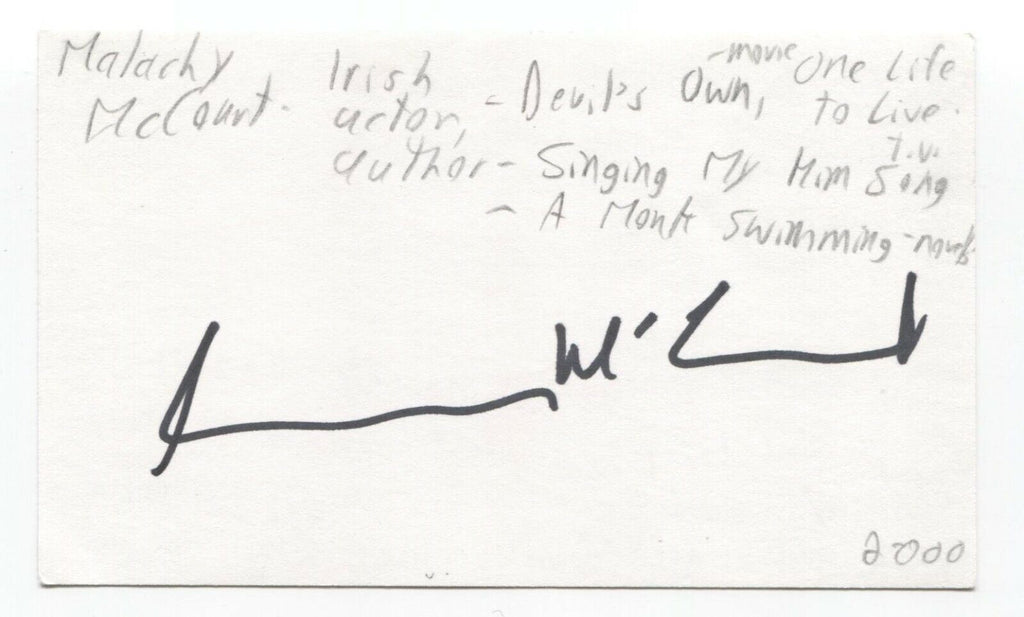 Malachy Irish - Devil's Own, -movie One Life
McCourt. actor, to Live.
T.V.
author - Singing My Him Song
- A Monk Swimming - novels
M'C
2000